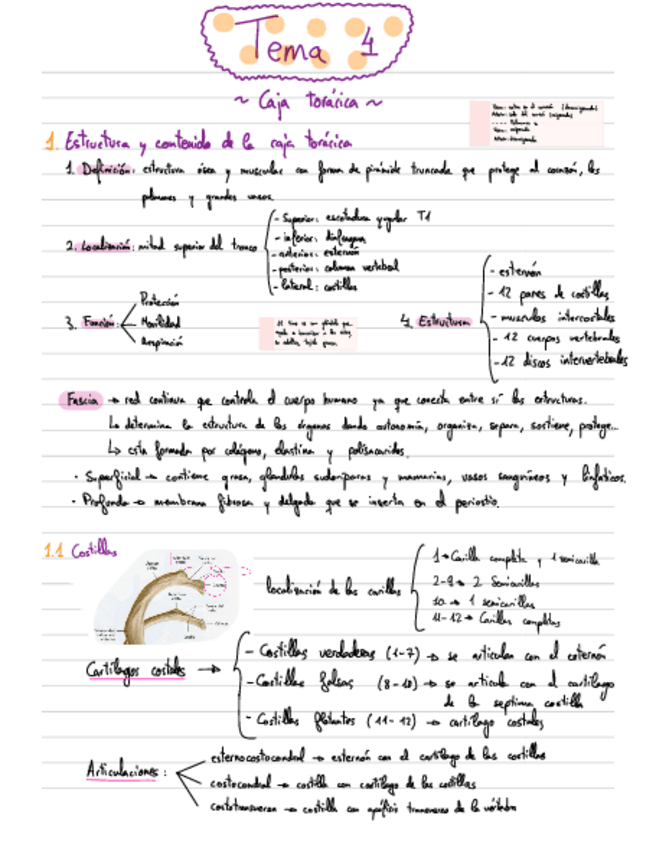 Tema 1
~ Caja torácica ~
1. Estructura y contenido de la caja torácica
1. Definición: estructura ósea y muscular con forma de pirámide truncada que protege al corazón, los
pulmones y grandes vasos.
2. Localización: mitad superior del tronco
- Superior: escotadura yugular T1
- inferior: diafragma
- anterior: esternón
- posterior: columna vertebral
- lateral: costillas
3. Función:
Protección
Movilidad
Respiración
4. Estructura
- esternón
- 12 pares de costillas
- musculos intercostales
- 12 cuerpos vertebrales
- 12 discos intervertebrales
Fascia → red continua que controla el cuerpo humano ya que conecta entre sí las estructuras.
↳ determina la estructura de los órganos dando autonomía, organiza, separa, sostiene, protege...
↳ esta formada por colágeno, elastina y polisacaridos.
· Superficial → contiene grasa, glandulas sudoriparas y mamarias, vasos sanguíneos y linfaticos.
· Profunda → membrana fibrosa y delgada que se inserta en el periostio.
1.1 Costillas
localización de las carillas
1 → Carilla completa y 1 semicarilla
2-9 → 2 Semicarillas
10 → 1 semicarillas
11-12 → Carillas completas
Cartílagos costales →
- Costillas verdaderas (1-7) → se articulan con el esternón
- Costillas falsas (8-10) → se articula con el cartílago
de la septima costilla
- Costillas flotantes (11-12) → cartílago costales
Articulaciones:
esternocostocondral → esternón con el cartílago de las costillas
costocondral → costilla con cartílago de las costillas
costotransversa → costilla con apófisis transversa de la vértebra